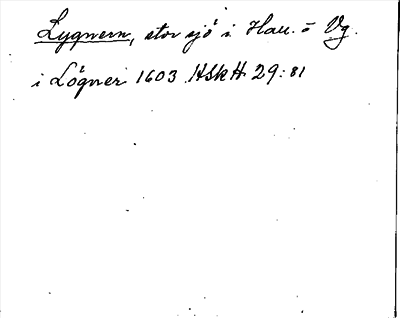 Lygnern, stor sjö i Hall. o Vg.
i Lögner 1603 HSkH 29:81